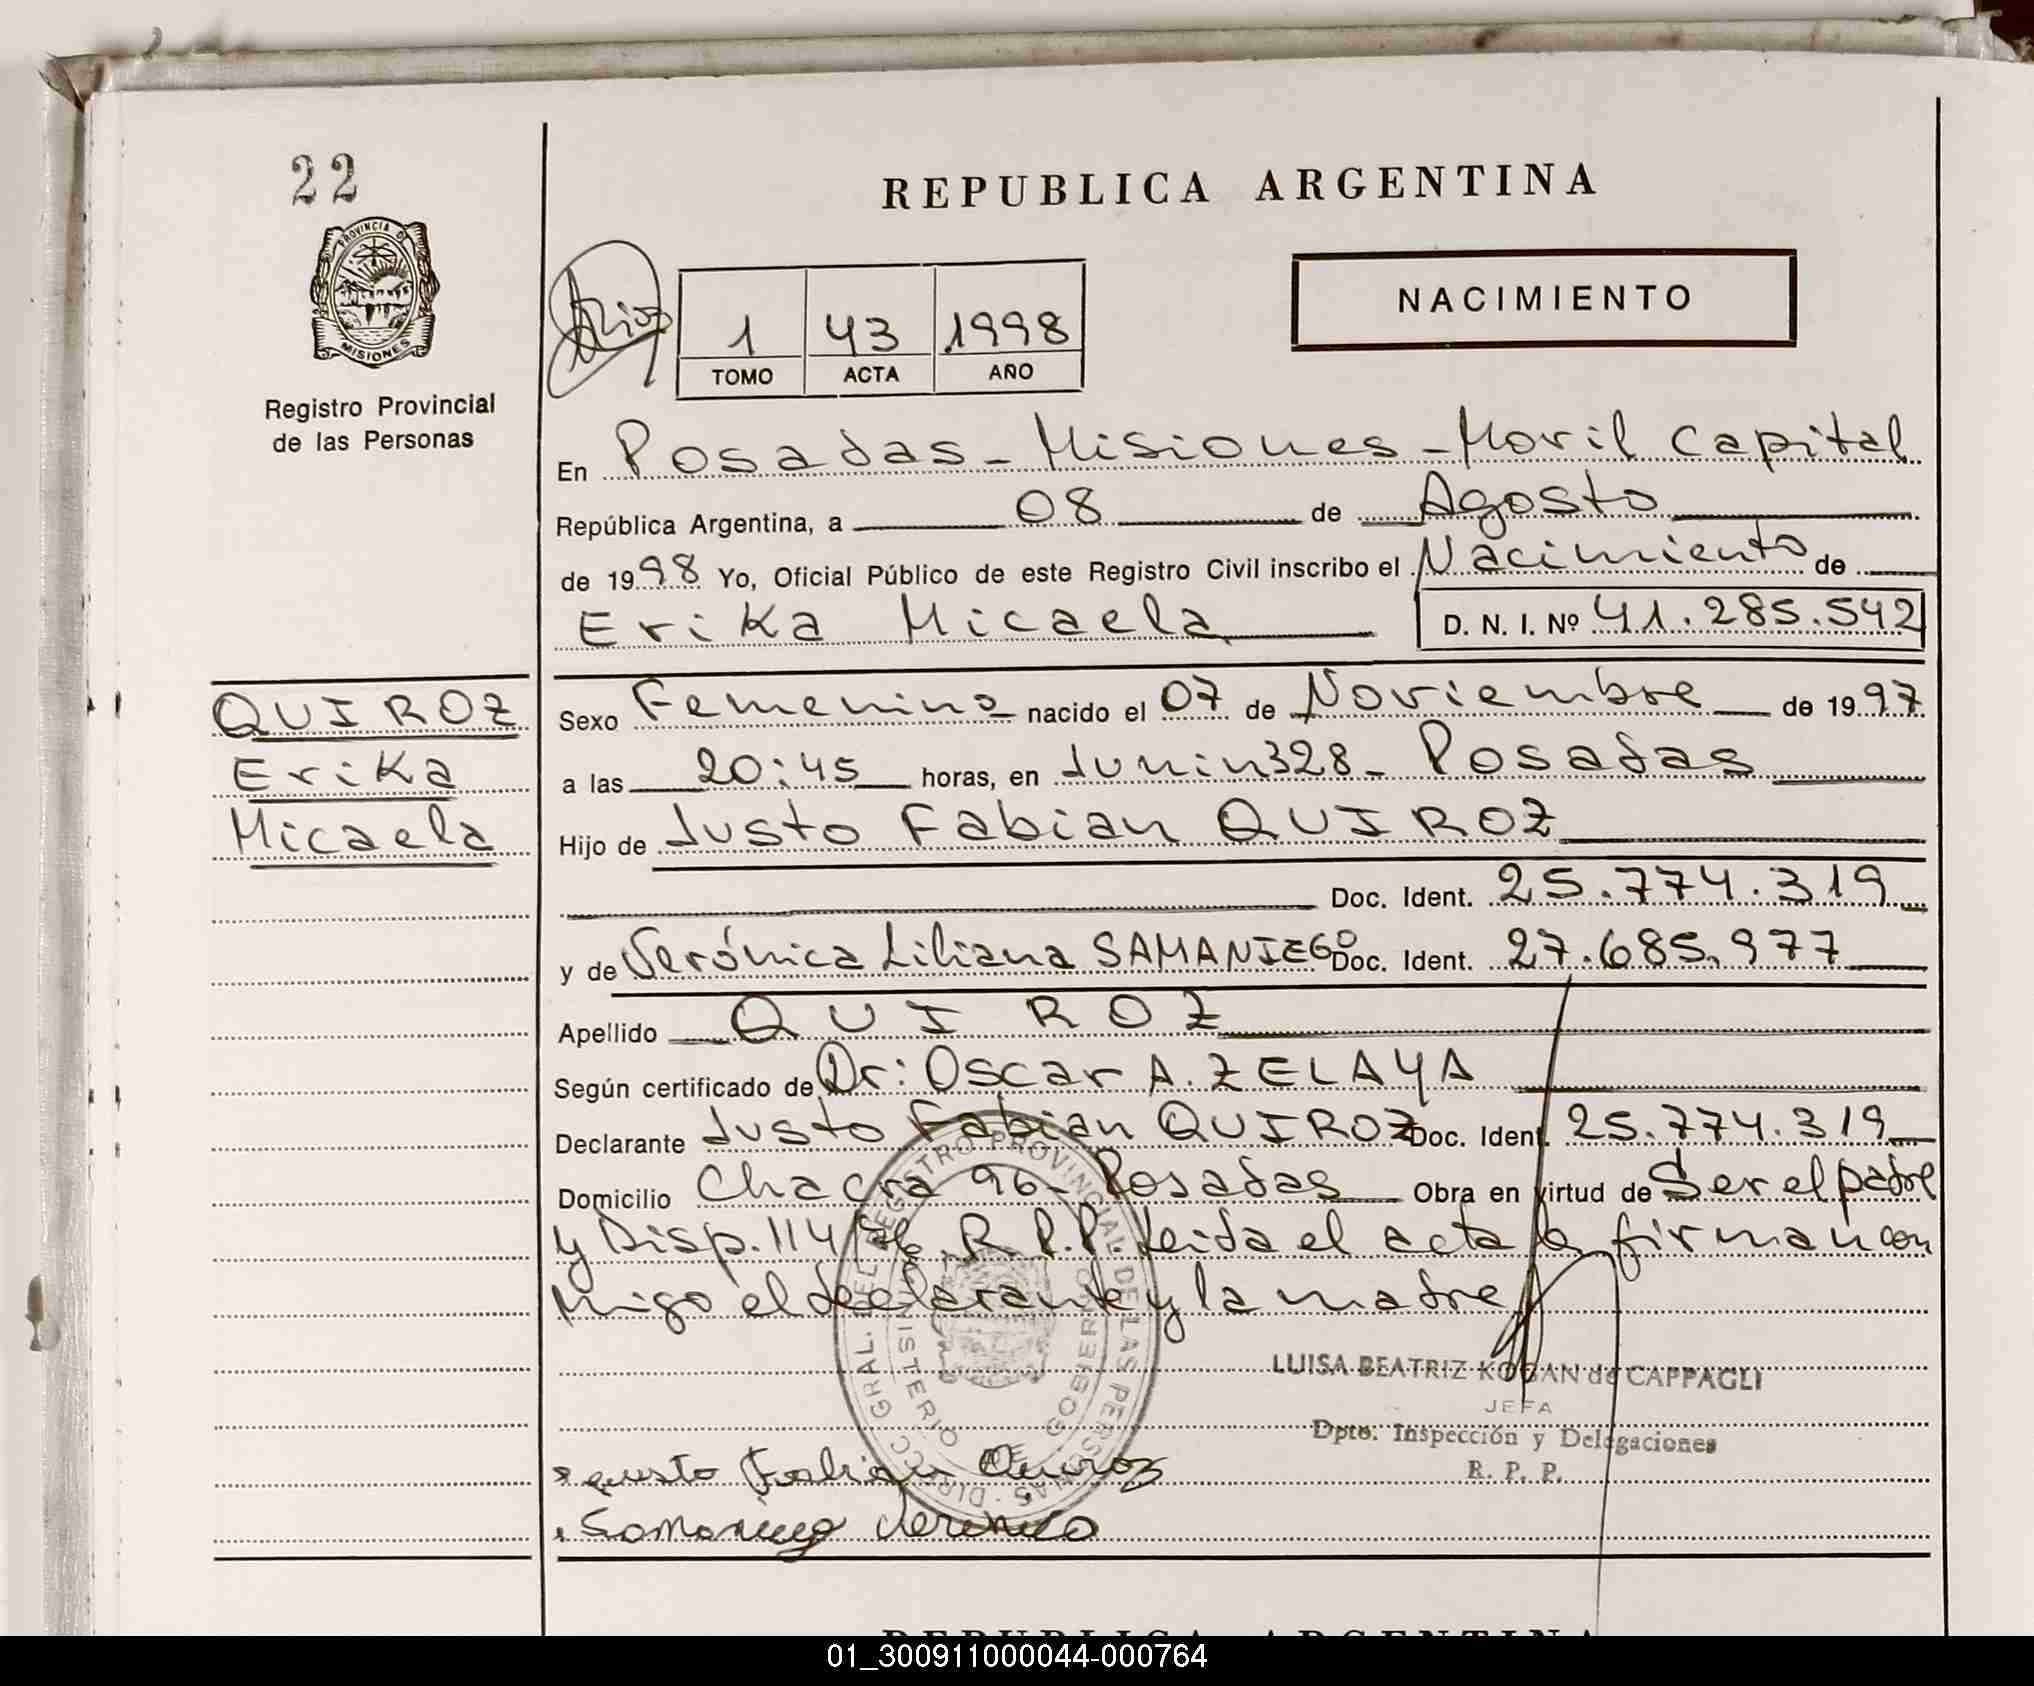 22
REPUBLICA ARGENTINA
PROVINCIA D
MISIONES
Registro Provincial
de las Personas
1 43 1998
TOMO ACTA AÑO
NACIMIENTO
En Posadas - Misiones - Movil Capital
República Argentina, a 08 de Agosto
de 1998 Yo, Oficial Público de este Registro Civil inscribo el Nacimiento de
Erika Micaela D. N. I. Nº 41.285.542
QUIROZ
Erika
Micaela
Sexo Femenino nacido el 07 de Noviembre de 1997
a las 20:45 horas, en Junin 328 - Posadas
Hijo de Justo Fabian QUIROZ
Doc. Ident. 25.774.319
y de Verónica Liliana SAMANIEGO Doc. Ident. 27.685.977
Apellido QUIROZ
Según certificado de Dr: Oscar A. ZELAYA
Declarante Justo Fabian QUIROZ Doc. Ident. 25.774.319
Domicilio Chacra 96 - Posadas Obra en virtud de Ser el padre
y Disp. 114/96 R.P.P. Leida el acta la firman con
migo el declarante y la madre
LUISA BEATRIZ KOGAN de CAPPAGLI
JEFA
Dpto. Inspección y Delegaciones
R. P. P.
DIRECC. GRAL. DEL REGISTRO PROVINCIAL DE LAS PERSONAS
MINISTERIO DE GOBIERNO
Justo Fabian Quiroz
Samaniego Veronica
REPUBLICA ARGENTINA
01_300911000044-000764